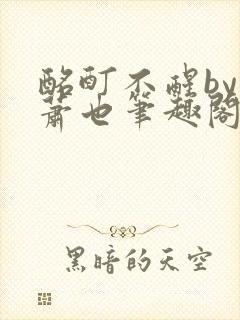 酩酊不醒by
萧也笔趣阁
黑暗的天空